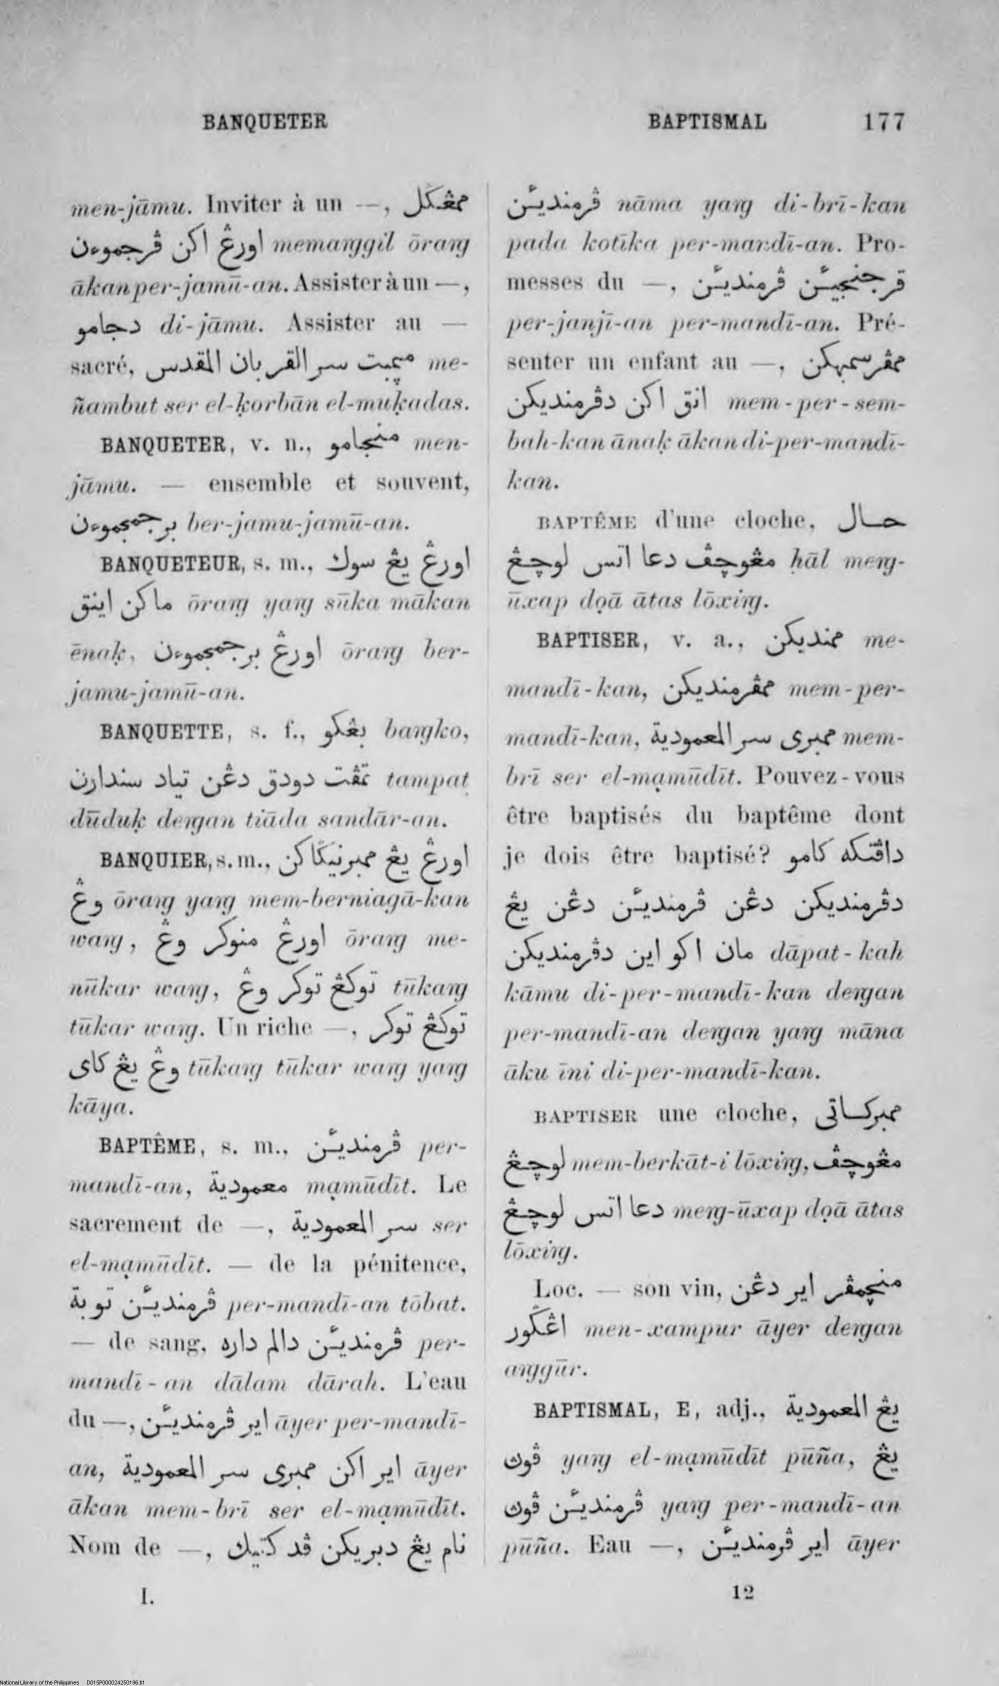 BANQUETER
BAPTISMAL 177
men-jāmu. Inviter à un —, ممڠݢل
اورڠ اكن ڤرجموءن memaṅggil ōraṅg
ākan per-jamū-an. Assister à un —,
دجامو di-jāmu. Assister au —
sacré, ميمبت سر القربان المقدس me-
ñambut ser el-ḳorbān el-muḳadas.
BANQUETER, v. n., منجامو men-
jāmu. — ensemble et souvent,
برجمجموءن ber-jamu-jamū-an.
BANQUETEUR, s. m., اورڠ يڠ سوك
ماكن اينق ōraṅg yaṅg sūka mākan
ēnaḳ, اورڠ برجمجموءن ōraṅg ber-
jamu-jamū-an.
BANQUETTE, s. f., بڠكو baṅgko,
تمڤت دودق دڠن تياد سندارن tampat
dūduḳ deṅgan tiāda sandār-an.
BANQUIER, s. m., اورڠ يڠ ممبرنيݢاكن
وڠ ōraṅg yaṅg mem-berniagā-kan
waṅg, اورڠ منوكر وڠ ōraṅg me-
nūkar waṅg, توكڠ توكر وڠ tūkaṅg
tūkar waṅg. Un riche —, توكڠ توكر
وڠ يڠ كاى tūkaṅg tūkar waṅg yaṅg
kāya.
BAPTÊME, s. m., ڤرمنديئن per-
mandī-an, معمودية mạmūdīt. Le
sacrement de —, سر المعمودية ser
el-mạmūdīt. — de la pénitence,
ڤرمنديئن توبة per-mandī-an tōbat.
— de sang, ڤرمنديئن دالم داره per-
mandī-an dālam dārah. L'eau
du —, اير ڤرمنديئن āyer per-mandī-
an, اير اكن ممبرى سر المعمودية āyer
ākan mem-brī ser el-mạmūdīt.
Nom de —, نام يڠ دبريكن ڤد كتيك
I.
ڤرمنديئن nāma yaṅg di-brī-kan
pada kotīka per-mandī-an. Pro-
messes du —, ڤرجنجيئن ڤرمنديئن
per-janjī-an per-mandī-an. Pré-
senter un enfant au —, ممڤرسمبهكن
انق اكن دڤرمنديكن mem-per-sem-
bah-kan ānaḳ ākan di-per-mandī-
kan.
BAPTÊME d'une cloche, حال
مڠوچڤ دعا اتس لوچڠ ḥāl meṅg-
ūxap dọā ātas lōxiṅg.
BAPTISER, v. a., ممنديكن me-
mandī-kan, ممڤرمنديكن mem-per-
mandī-kan, ممبرى سر المعمودية mem-
brī ser el-mạmūdīt. Pouvez-vous
être baptisés du baptême dont
je dois être baptisé? داڤتكه كامو
دڤرمنديكن دڠن ڤرمنديئن دڠن يڠ
مان اكو اين دڤرمنديكن dāpat-kah
kāmu di-per-mandī-kan deṅgan
per-mandī-an deṅgan yaṅg māna
āku īni di-per-mandī-kan.
BAPTISER une cloche, ممبركاتي
لوچڠ mem-berkāt-i lōxiṅg, مڠوچڤ
دعا اتس لوچڠ meṅg-ūxap dọā ātas
lōxiṅg.
Loc. — son vin, منچمڤر اير دڠن
اڠݢور men-xampur āyer deṅgan
aṅggūr.
BAPTISMAL, E, adj., يڠ المعمودية
ڤوڽ yaṅg el-mạmūdīt pūña, يڠ
ڤرمنديئن ڤوڽ yaṅg per-mandī-an
pūña. Eau —, اير ڤرمنديئن āyer
12
National Library of the Philippines